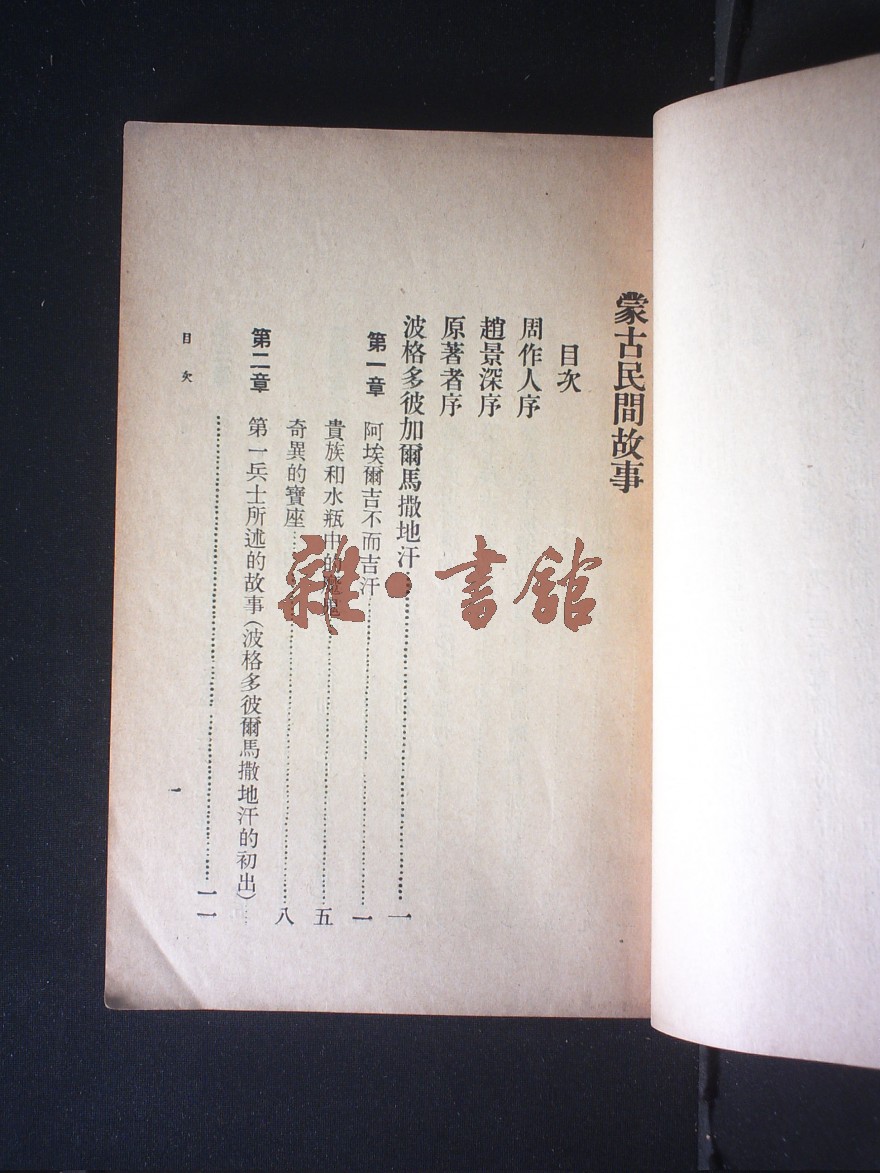 蒙古民間故事
目次
周作人序
趙景深序
原著者序
波格多彼加爾馬撒地汗……一
第一章 阿埃爾吉不而吉汗……一
貴族和水瓶中的……五
奇異的寶座……八
第二章 第一兵士所述的故事(波格多彼爾馬撒地汗的初出)……
……一一
目次
一
雜·書館